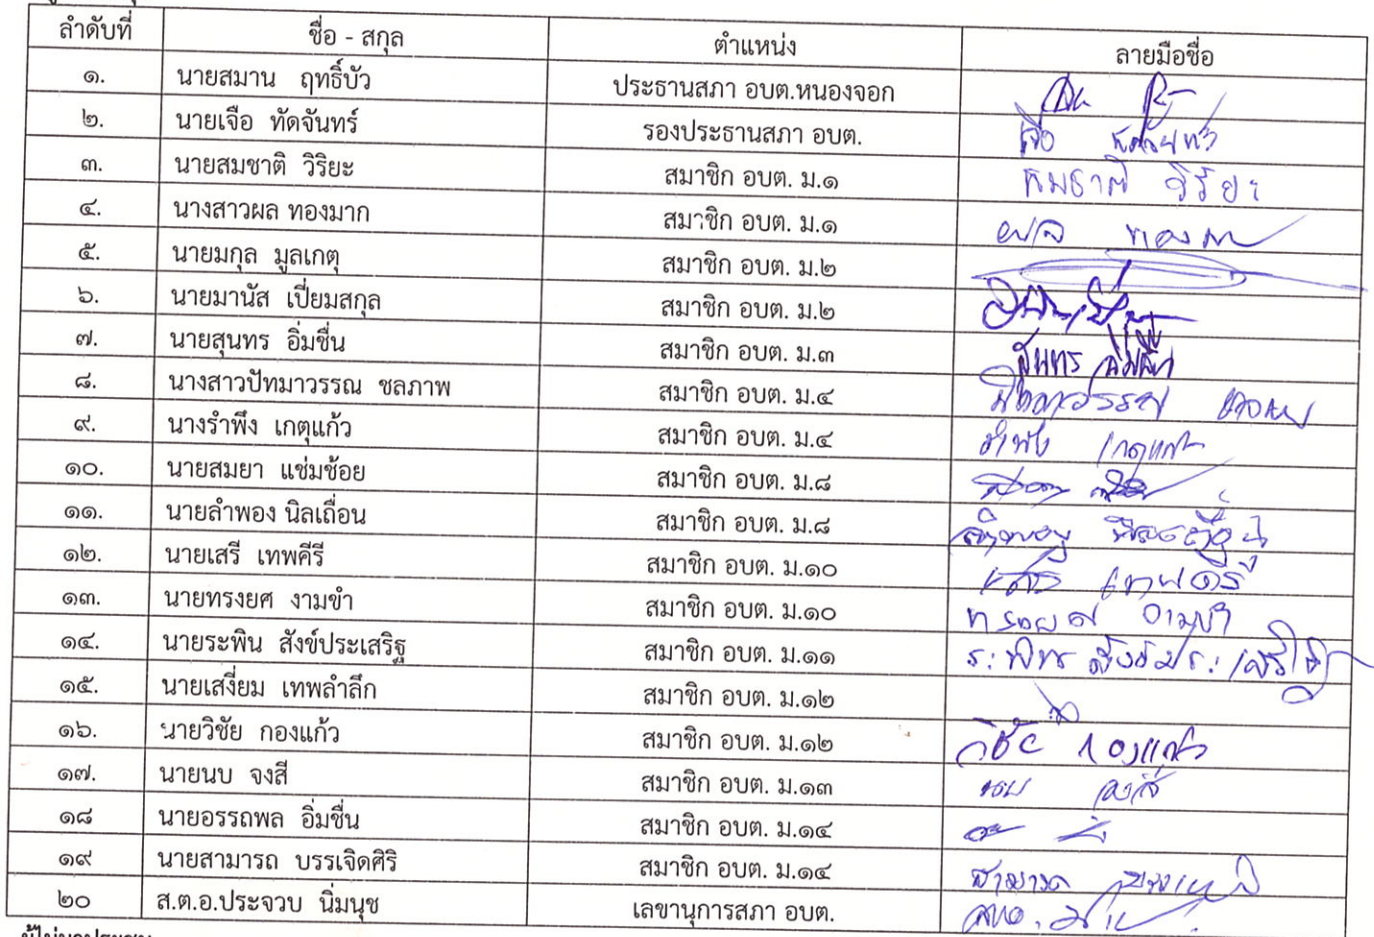 ลำดับที่ ชื่อ - สกุล ตำแหน่ง ลายมือชื่อ
๑. นายสมาน ฤทธิ์บัว ประธานสภา อบต.หนองจอก
๒. นายเจือ ทัดจันทร์ รองประธานสภา อบต. เจือ ทัดจันทร์
๓. นายสมชาติ วิริยะ สมาชิก อบต. ม.๑ สมชาติ วิริยะ
๔. นางสาวผล ทองมาก สมาชิก อบต. ม.๑ ผล ทองมาก
๕. นายมกุล มูลเกตุ สมาชิก อบต. ม.๒
๖. นายมานัส เปี่ยมสกุล สมาชิก อบต. ม.๒
๗. นายสุนทร อิ่มชื่น สมาชิก อบต. ม.๓ สุนทร อิ่มชื่น
๘. นางสาวปัทมาวรรณ ชลภาพ สมาชิก อบต. ม.๔ ปัทมาวรรณ ชลภาพ
๙. นางรำพึง เกตุแก้ว สมาชิก อบต. ม.๔ รำพึง เกตุแก้ว
๑๐. นายสมยา แช่มช้อย สมาชิก อบต. ม.๘
๑๑. นายลำพอง นิลเถื่อน สมาชิก อบต. ม.๘ ลำพอง นิลเถื่อน
๑๒. นายเสรี เทพคีรี สมาชิก อบต. ม.๑๐ เสรี เทพคีรี
๑๓. นายทรงยศ งามขำ สมาชิก อบต. ม.๑๐ ทรงยศ งามขำ
๑๔. นายระพิน สังข์ประเสริฐ สมาชิก อบต. ม.๑๑ ระพิน สังข์ประเสริฐ
๑๕. นายเสงี่ยม เทพลำลึก สมาชิก อบต. ม.๑๒
๑๖. นายวิชัย กองแก้ว สมาชิก อบต. ม.๑๒ วิชัย กองแก้ว
๑๗. นายนบ จงสี สมาชิก อบต. ม.๑๓ นบ จงสี
๑๘ นายอรรถพล อิ่มชื่น สมาชิก อบต. ม.๑๔
๑๙ นายสามารถ บรรเจิดศิริ สมาชิก อบต. ม.๑๔ สามารถ
๒๐ ส.ต.อ.ประจวบ นิ่มนุช เลขานุการสภา อบต.